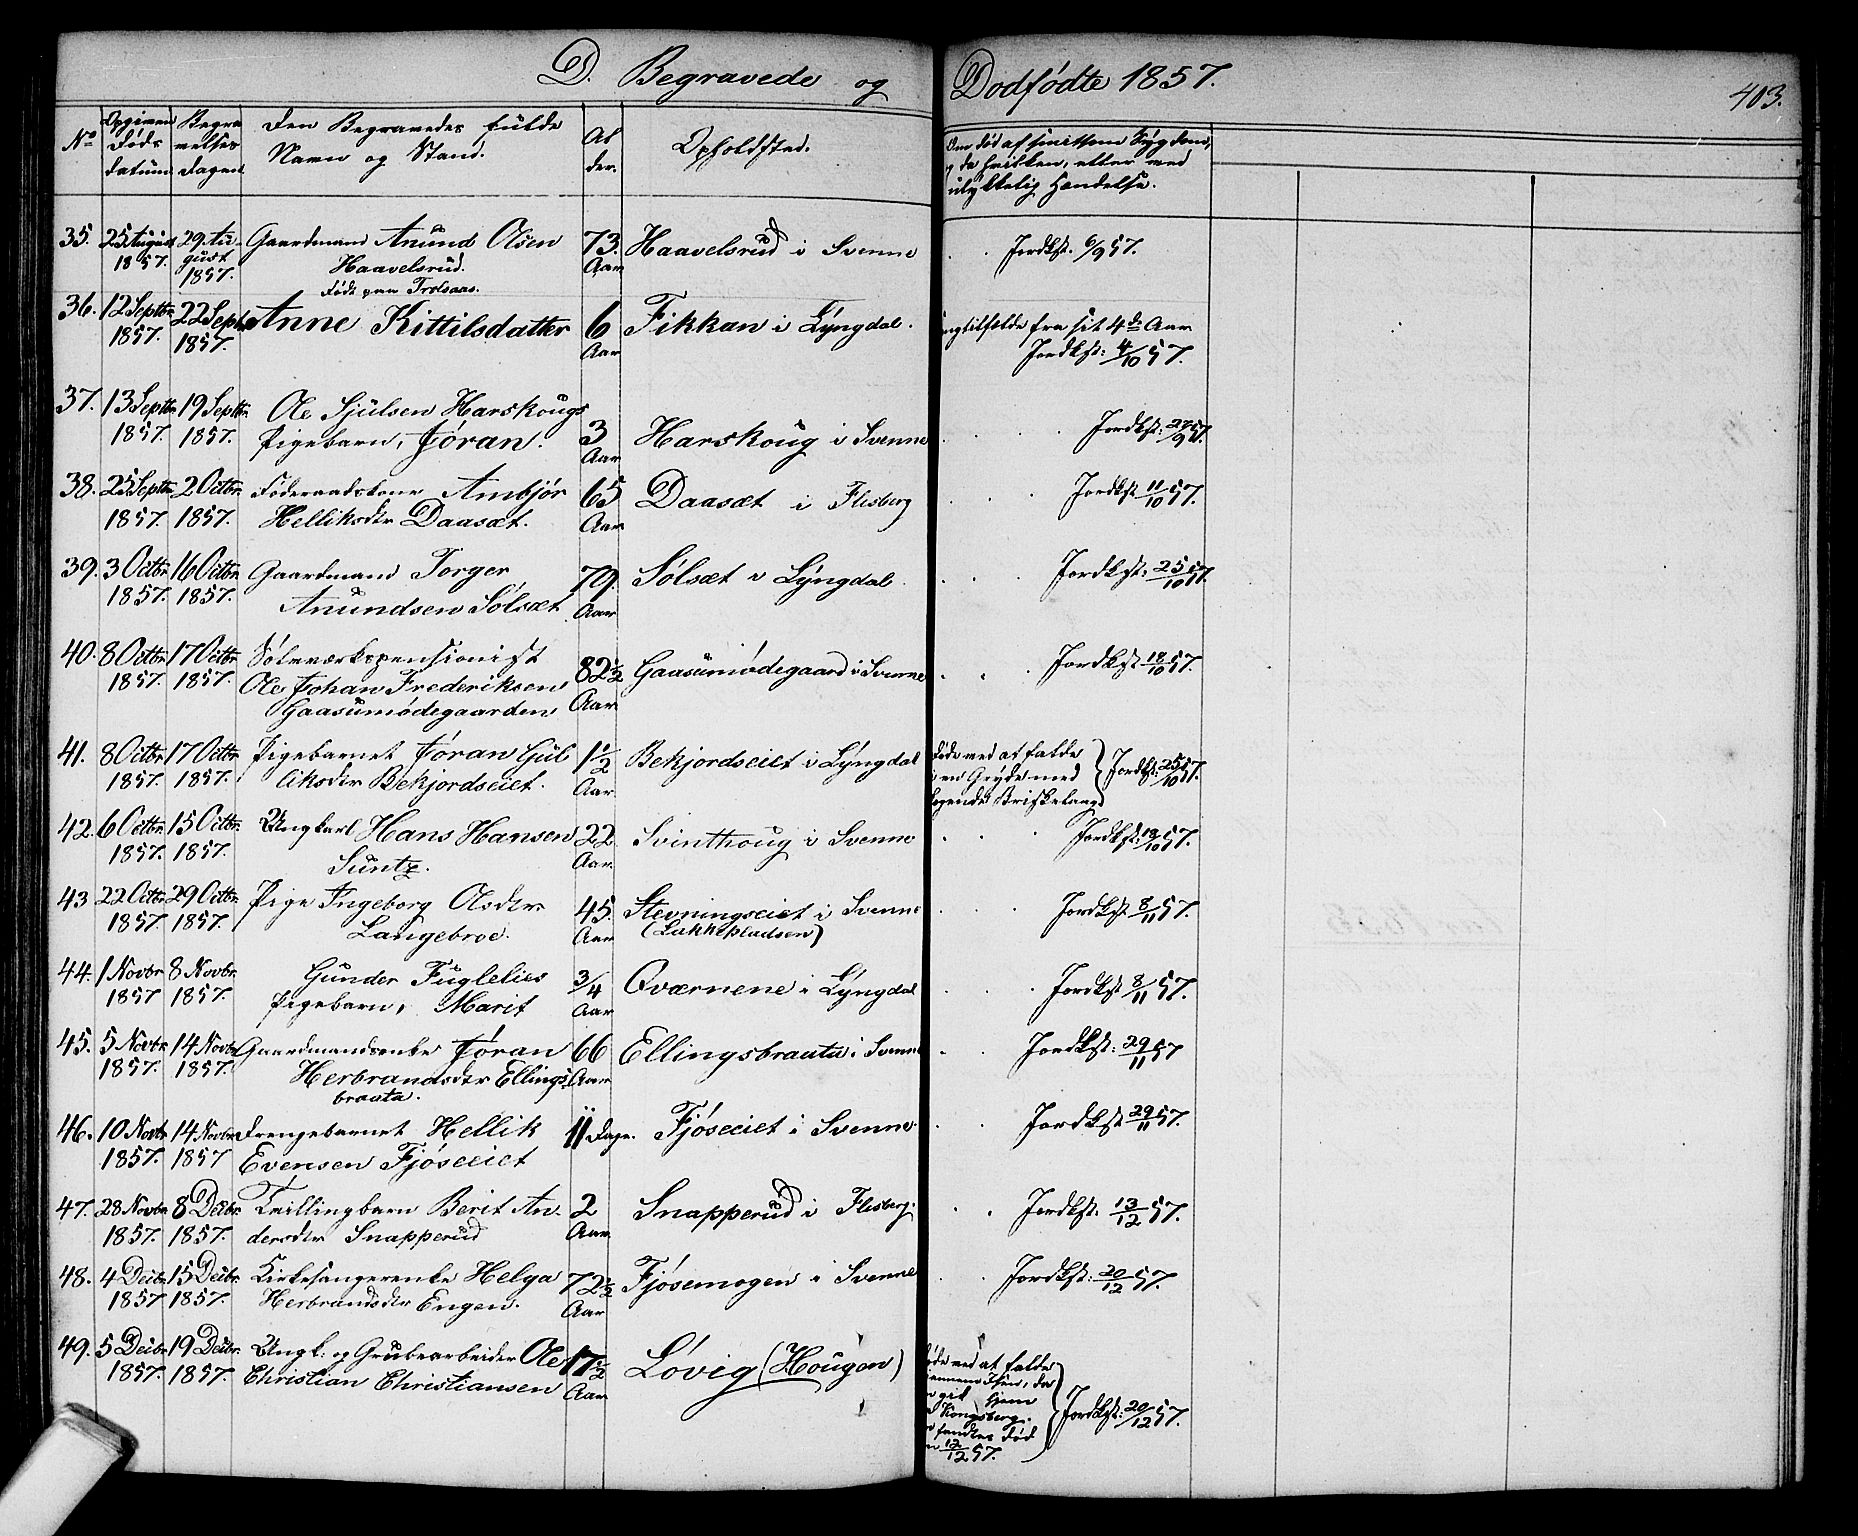 D. Begravede og Dodfødte 1857. 403.
No Opgiven Døds datum Begravelses dagen Den Begravedes fulde Navn og Stand. Alder. Opholdsted. Om død af smitsom Sygdom, og da hvilken, eller ved ulykkelig Hændelse.
35. 25 August 29. Au- Gaardmand Anund Olsen 73. Haavelsrud i Svenne Jordkst. 6/9 57.
1857. gust Haavelsrud. Aar
1857. født paa Trolsaas.
36. 12 Septbr. 22 Septbr. Anne Kittilsdatter 6 Fikkan i Lyngdal. fra sit 4de Aar
1857. 1857. Aar Jordkst: 4/10 57.
37. 13 Septbr. 19 Septbr. Ole Sjulsen Harskougs
1857. 1857. Pigebarn, Jøran. 3 Harskoug i Svenne Jordkst: 27/9 57.
Aar
38. 25 Septbr. 2 Octbr. Føderaadskone Ambjør 65 Daasæt i Flesberg Jordkst 11/10 57.
1857. 1857. Helliksdtr Daasæt. Aar
39. 3 Octbr. 16 Octbr. Gaardmand Torger 79. Sølsæt i Lyngdal. Jordkst: 25/10 57.
1857. 1857. Anundsen Sølsæt Aar
40. 8 Octbr. 17 Octbr. Sølvværkspensionist
1857. 1857. Ole Johan Frederiksen 82 1/2 Gaasumødegaard i Svenne Jordkst 18/10 57.
Gaasumødegaarden Aar
41. 8 Octbr. 17 Octbr. Pigebarnet Jøran Gul 1 1/2 Bekjordseiet i Lyngdal døde ved at falde
1857. 1857. liksdtr Bekjordseiet. Aar i en Gryde med Jordkst: 25/10 57.
kogende Briskelaug
42. 6 Octbr. 15 Octbr. Ungkarl Hans Hansen 22 Svinthoug i Svenne Jordkst: 18/10 57.
1857. 1857. Suntz. Aar
43 22 Octbr. 29 Octbr. Pige Ingeborg Olsdtr. 45. Stevningseiet i Svenne Jordkst 8/11 57.
1857. 1857. Langebroe. Aar (Lukkepladsen)
44. 1 Novbr. 8 Novbr. Gunder Fuglelies 3/4 Qværnene i Lyngdal Jordkst 8/11 57.
1857 1857. Pigebarn, Marit Aar
45. 5 Novbr. 14 Novbr. Gaardmandsenke Jøran 66 Ellingsbrauta i Svenne Jordkst: 29/11 57
1857. 1857. Herbrandsdtr Ellings- Aar
brauta.
46. 10 Novbr. 14 Novbr. Drengebarnet Hellik 11 Dage. Fjøseeiet i Svenne. Jordkst 29/11 57.
1857. 1857 Evensen Fjøseeiet
47. 28 Novbr. 8 Decbr. Tvillingbarn Berit An- 2 Snapperud i Flesberg. Jordkst. 13/12 57.
1857. 1857. dersdtr Snapperud Aar.
48. 4 Decbr. 15 Decbr. Kirkesangerenke Helga 72 1/2 Fjøsemogen i Svenne Jordkst: 20/12 57.
1857 1857. Herbrandsdtr Engen. Aar
49. 5 Decbr. 19 Decbr. Ungk: og Grubearbeider Ole 17 1/2 Løvig (Hougen) døde ved at falde
1857. 1857. Christian Christiansen Aar gjennem Isen, da
han gik hjem
fra Kongsberg. Jordkst: 20/12 57.
fandtes død
den 12/12 57.